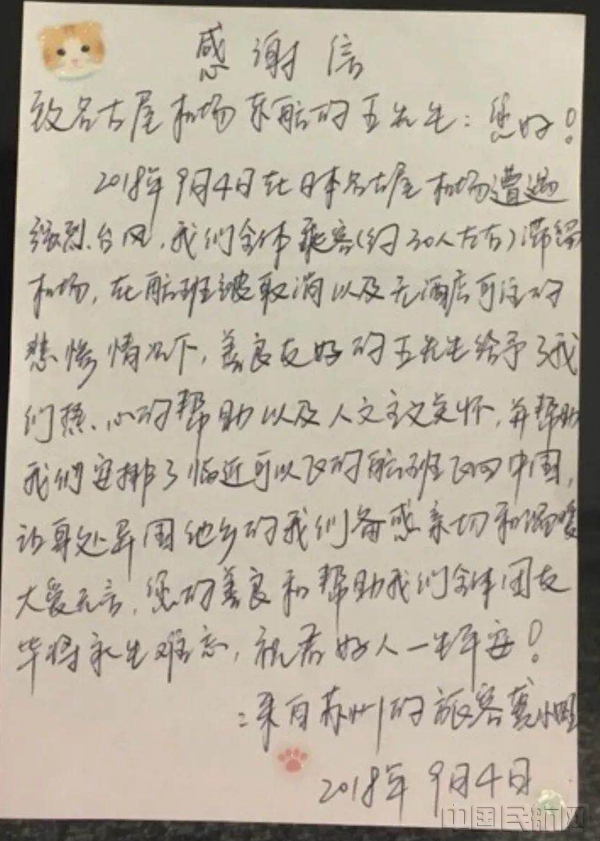 感谢信
致名古屋机场东航的王先生：您好！
2018年9月4日在日本名古屋机场遭遇
强烈台风，我们全体乘客（约30人左右）滞留
机场，在航班被取消以及无酒店可住的
悲惨情况下，善良友好的王先生给予了我
们真心的帮助以及人文主义关怀，并帮助
我们安排了临近可以飞的航班飞回中国，
让身处异国他乡的我们备感亲切和温暖
大爱无言，您的善良和帮助我们全体团友
毕将永生难忘，祝君好人一生平安！
：来自苏州的旅客
2018年9月4日
中国民航网